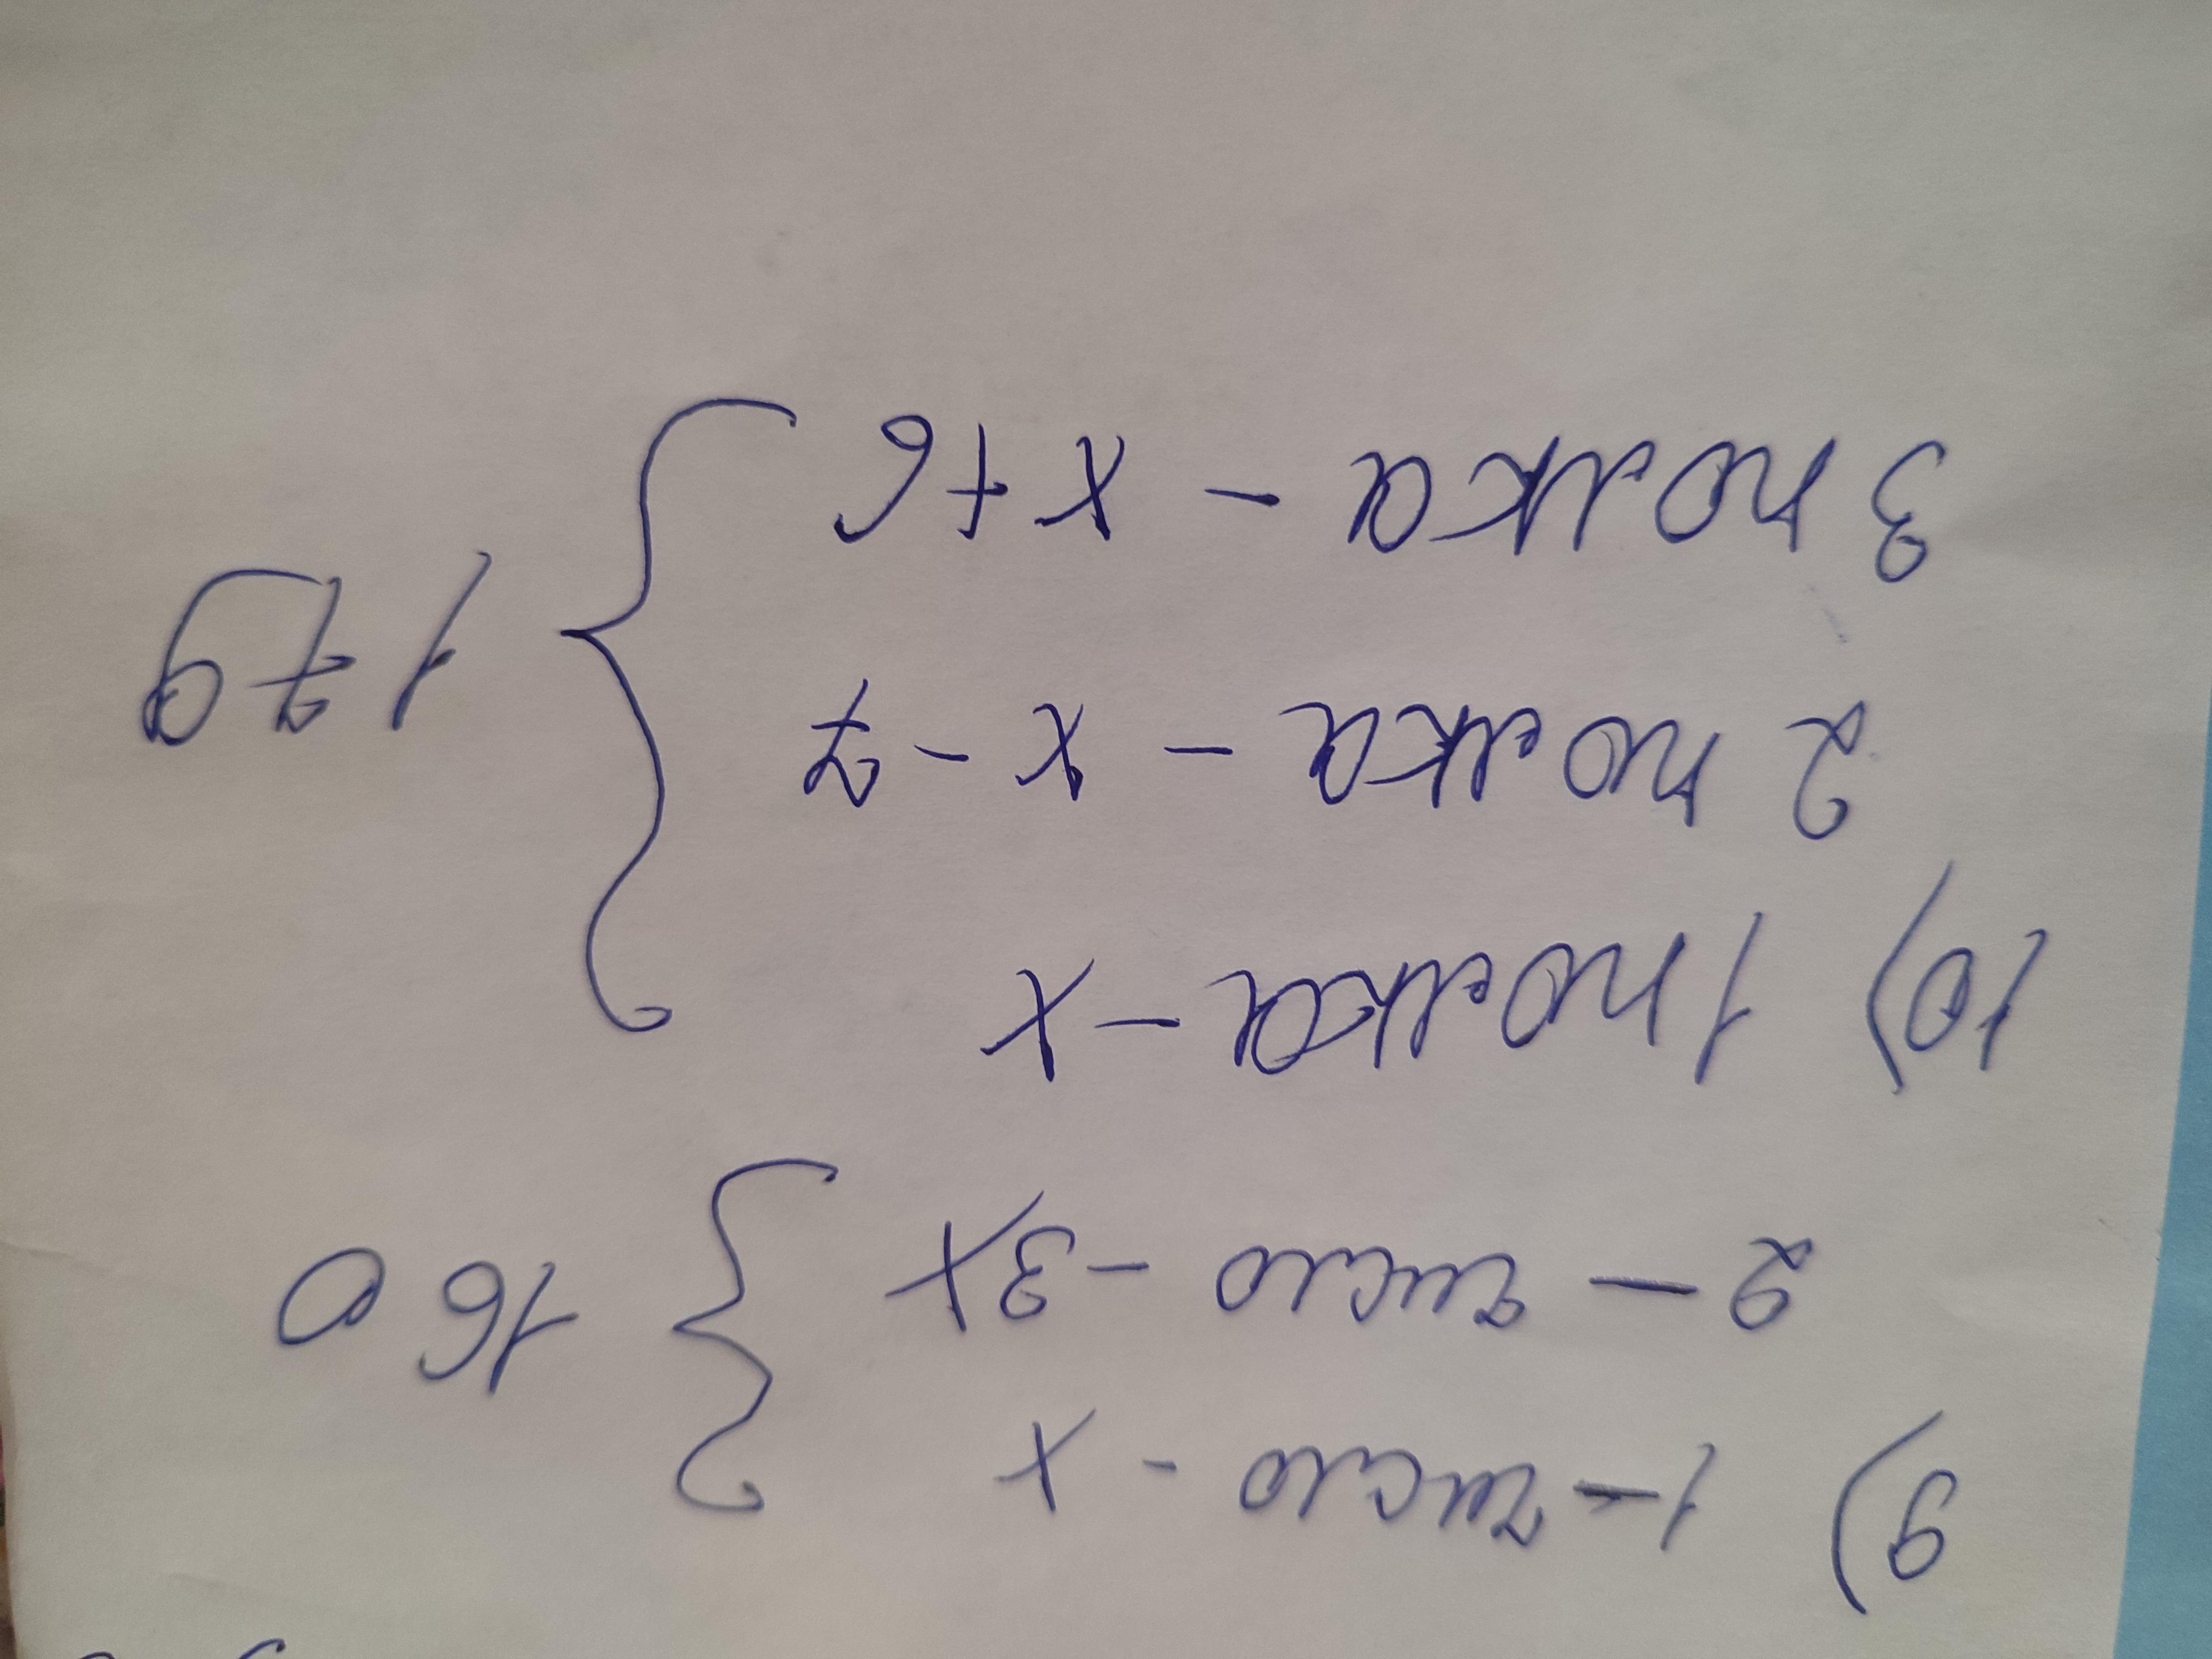 9) 1 - число - x
2 - число - 3x } 160
10) 1 полка - x
2 полка - x - 7 } 179
3 полка - x + 6